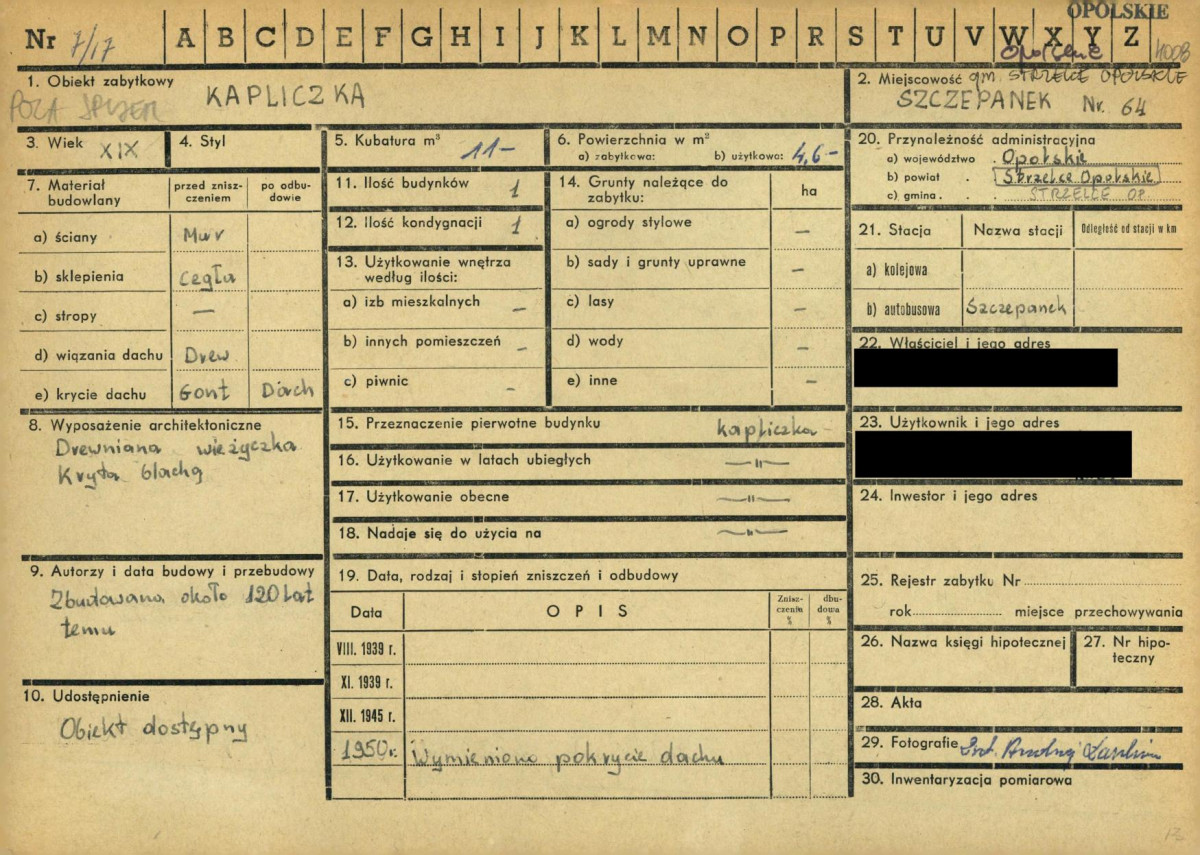 OPOLSKIE
Nr 7/17 A B C D E F G H I J K L M N O P R S T U V W X Y Z 4008
Opolskie
1. Obiekt zabytkowy
KAPLICZKA
POZA SPISEM
2. Miejscowość gm. STRZELCE OPOLSKIE
SZCZEPANEK Nr. 64
3. Wiek XIX
4. Styl
5. Kubatura m³ 11-
6. Powierzchnia w m²
a) zabytkowa: b) użytkowa: 4,6-
7. Materiał budowlany
przed zniszczeniem
po odbudowie
a) ściany Mur
b) sklepienia cegła
c) stropy —
d) wiązania dachu Drew.
e) krycie dachu Gont Dach
8. Wyposażenie architektoniczne
Drewniana wieżyczka
Kryta blachą
9. Autorzy i data budowy i przebudowy
Zbudowana około 120 lat
temu
10. Udostępnienie
Obiekt dostępny
11. Ilość budynków 1
12. Ilość kondygnacji 1
13. Użytkowanie wnętrza
według ilości:
a) izb mieszkalnych –
b) innych pomieszczeń –
c) piwnic –
14. Grunty należące do
zabytku:
ha
a) ogrody stylowe –
b) sady i grunty uprawne –
c) lasy –
d) wody –
e) inne –
15. Przeznaczenie pierwotne budynku kapliczka-
16. Użytkowanie w latach ubiegłych —"—
17. Użytkowanie obecne —"—
18. Nadaje się do użycia na —"—
19. Data, rodzaj i stopień zniszczeń i odbudowy
Data OPIS Zniszczenia % dbudowa %
VIII. 1939 r.
XI. 1939 r.
XII. 1945 r.
1950 r. Wymieniono pokrycie dachu
20. Przynależność administracyjna
a) województwo . Opolskie
b) powiat . Strzelce Opolskie
c) gmina . . STRZELCE OP.
21. Stacja Nazwa stacji Odległość od stacji w km
a) kolejowa
b) autobusowa Szczepanek
22. Właściciel i jego adres
23. Użytkownik i jego adres
24. Inwestor i jego adres
25. Rejestr zabytku Nr
rok miejsce przechowywania
26. Nazwa księgi hipotecznej
27. Nr hipoteczny
28. Akta
29. Fotografie
30. Inwentaryzacja pomiarowa